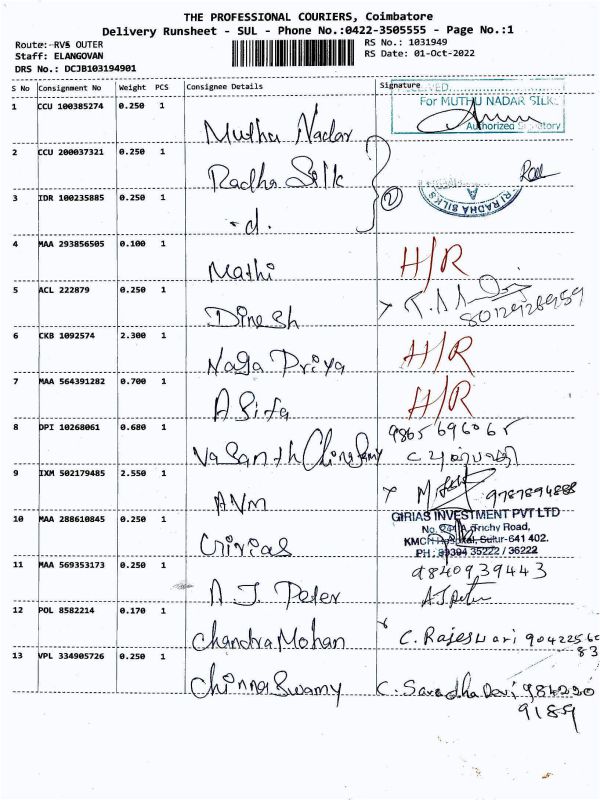 THE PROFESSIONAL COURIERS, Coimbatore
Delivery Runsheet - SUL - Phone No.:0422-3505555 - Page No.:1
Route: RVS OUTER
RS No.: 1031949
Staff: ELANGOVAN
RS Date: 01-Oct-2022
DRS No.: DCJB103194901
S No Consignment No Weight PCS Consignee Details Signature
1 CCU 100385274 0.250 1 Muthu Nadar
For MUTHU NADAR SILKS
Authorized Signatory
2 CCU 200037321 0.250 1 Radha Silk
②
RI RADHA SILKS
3 IDR 100235885 0.250 1 -d.
4 MAA 293856505 0.100 1 Mathi H/R
5 ACL 222879 0.250 1 Dinesh
8012928959
6 CKB 1092574 2.300 1 Naga Priya H/R
7 MAA 564391282 0.700 1 Asifa H/R
8 DPI 10268061 0.680 1 Vasanth Chinsamy 9865696065
9 IXM 502179485 2.550 1 AVM 9787894888
10 MAA 288610845 0.250 1 Girias
GIRIAS INVESTMENT PVT LTD
Trichy Road,
KMCH Hospital, Sulur-641 402.
PH: 89394 35222 / 36222
11 MAA 569353173 0.250 1 A J. Peter 9840939443
A.J. Peter
12 POL 8582214 0.170 1 Chandra Mohan C. Rajeswari 90422560
83
13 VPL 334905726 0.250 1 Chinna Swamy C. Saradha Devi 984220
9189